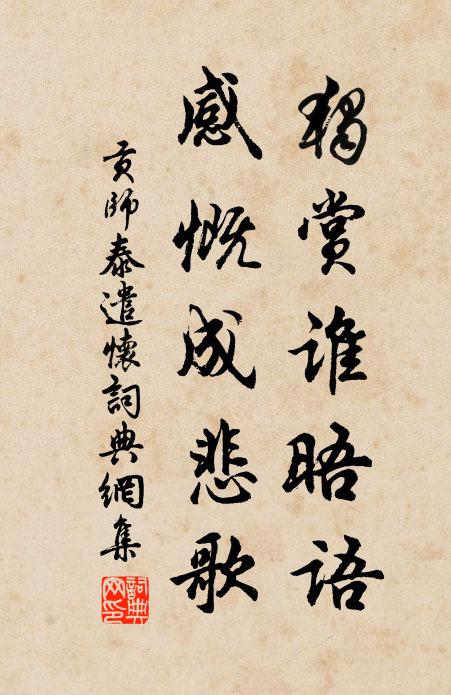 獨賞誰晤語
感慨成悲歌
貢師泰遣懷詞典網集
詞典網印